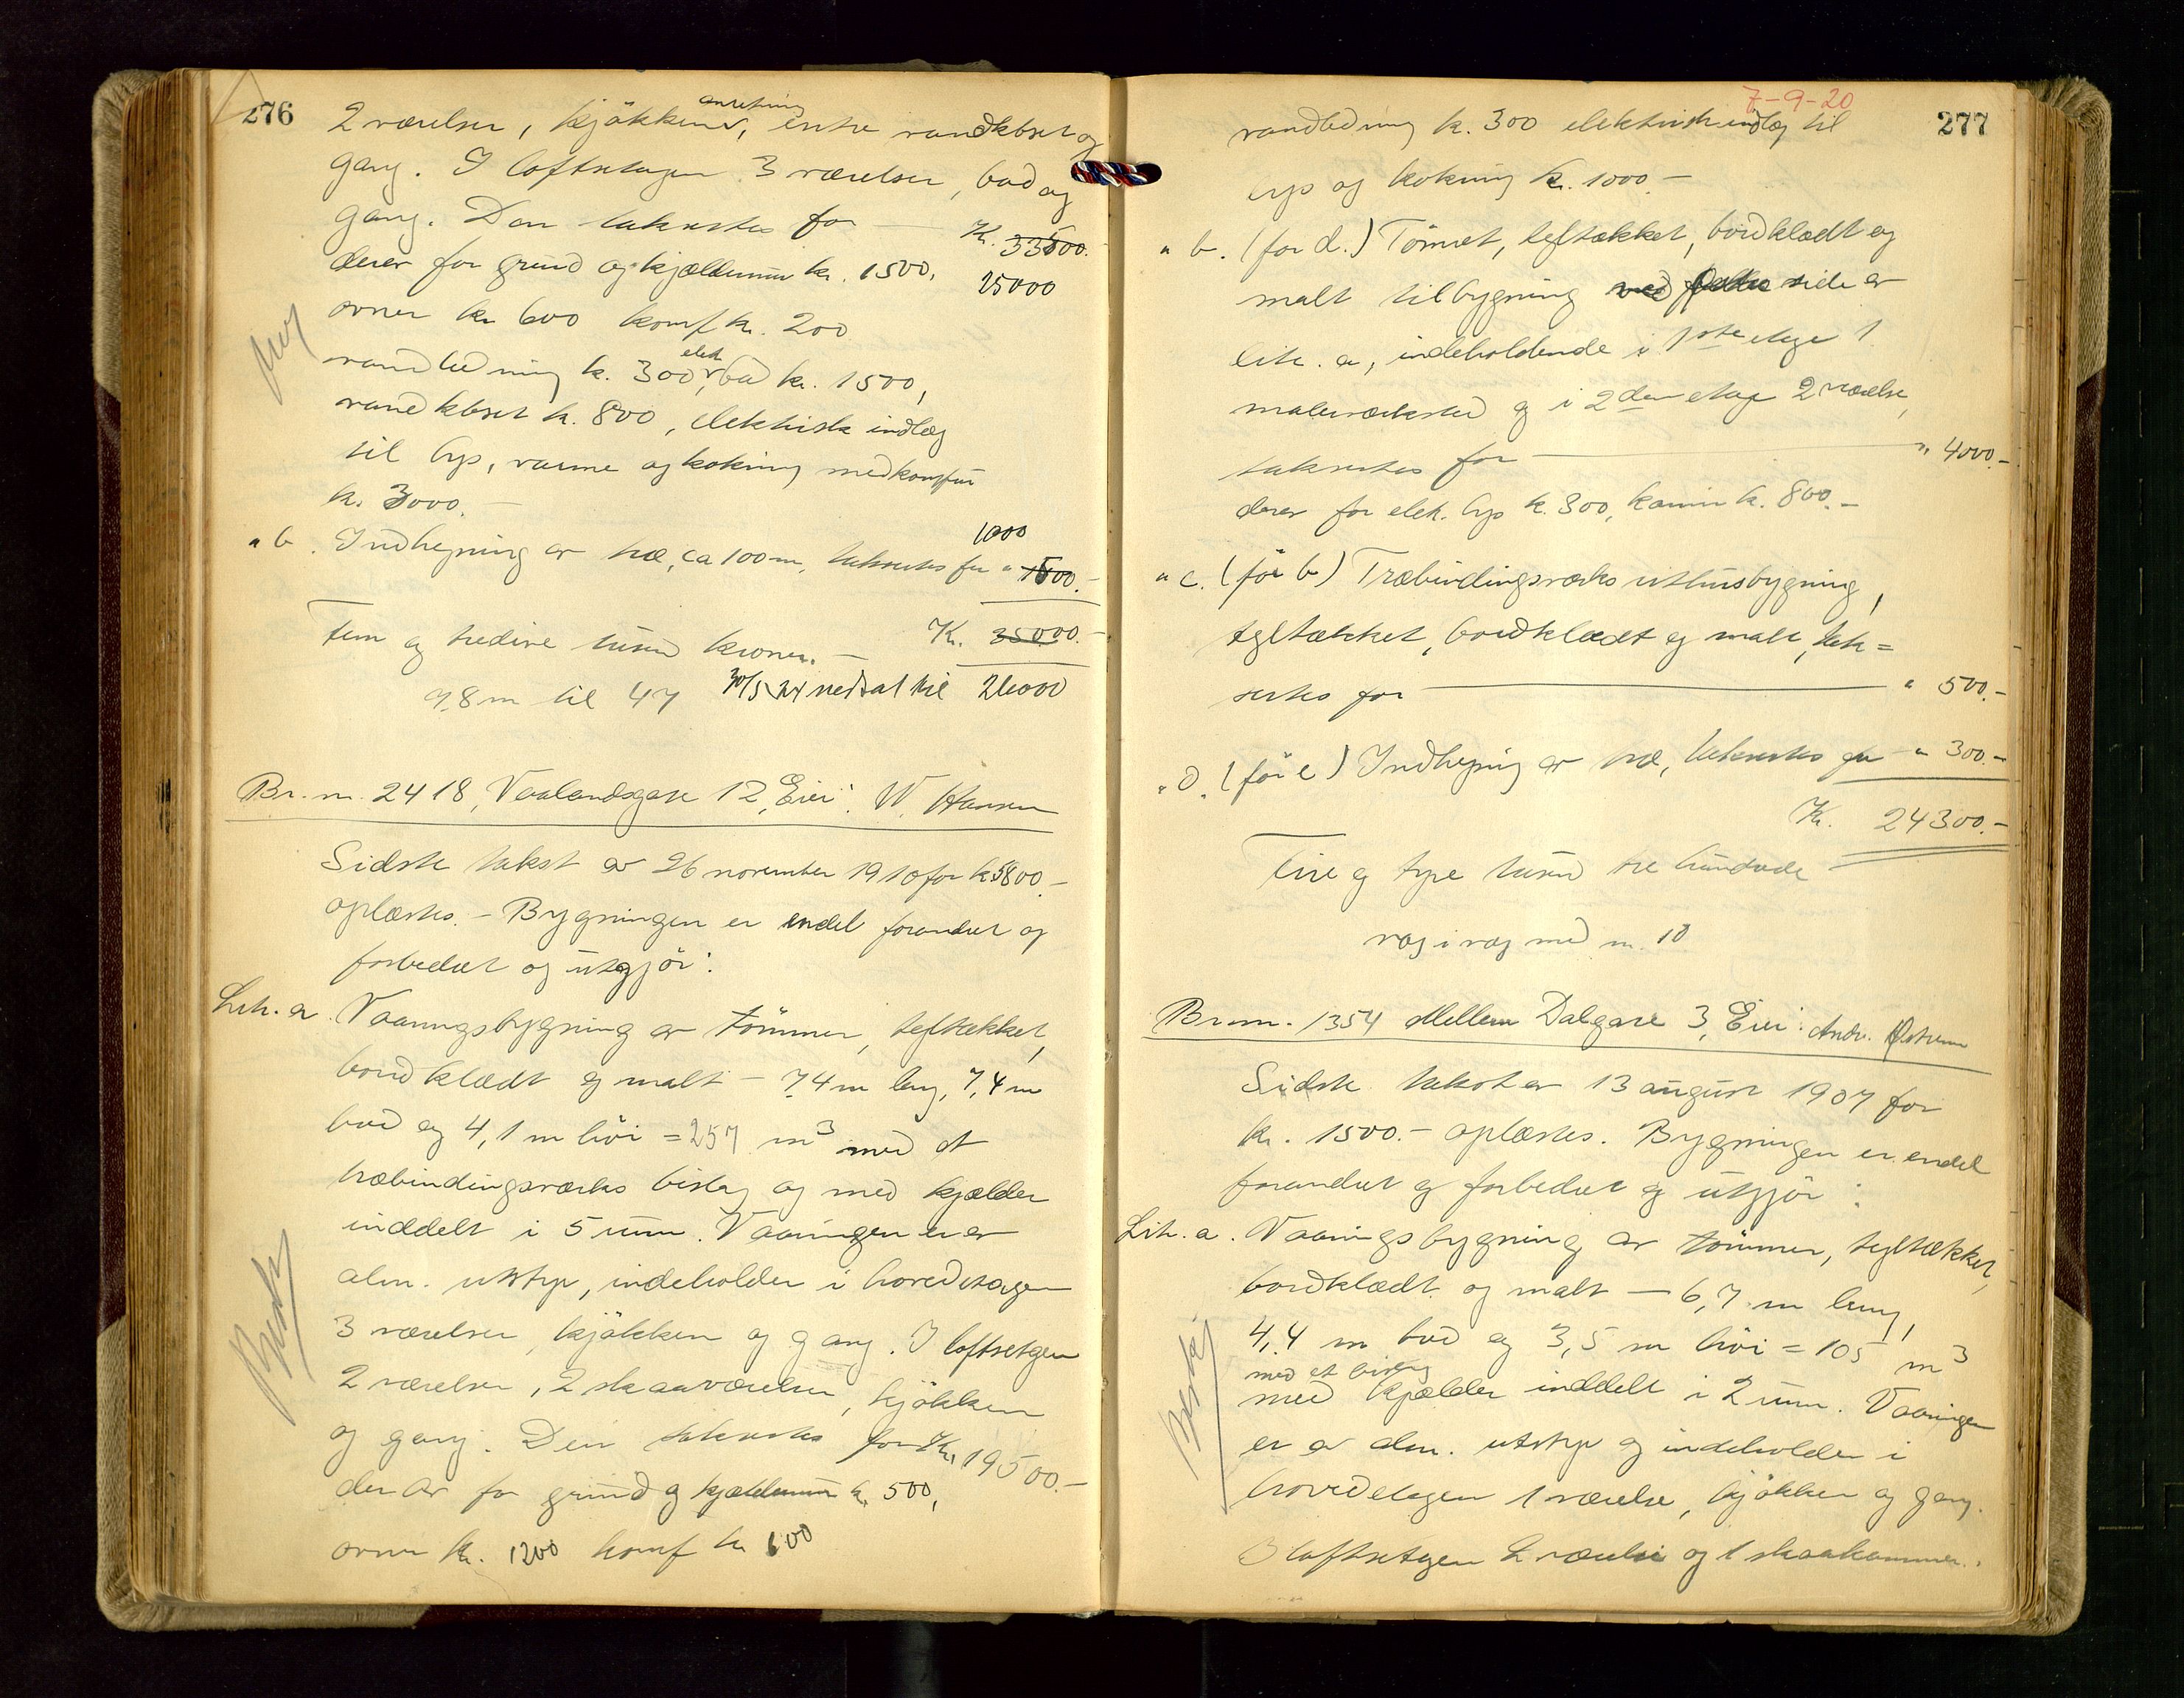 276
2 værelser, kjökken, anretning, entre vandkloset og
gang. I loftsetagen 3 værelser, bad og
gang. Den takseres for Kr. 33500.-
derav for grund og kjælderrum kr. 1500, 25000
ovner kr 600 komf kr. 200
vandledning kr. 300, elek bad kr. 1500,
vandkloset kr. 800, elektrisk indlæg
til lys, varme og kokning med komfur
kr. 3000.-
1000
" b. Indhegning av træ, ca 100 m, takseres for " 1500.-
Fem og tredive tusend kroner.- Kr. 35000.-
9,8 m til 47 30/5 24 nedsat til 26000
Br. nr. 2418, Vaalandsgate 12, Eier: W. Hansen
Sidste takst av 26 november 1910 for kr 5800.-
oplæstes. - Bygningen er endel forandret og
forbedret og utgjör:
Lit. a. Vaaningsbygning av tömmer, teltækket,
bordklædt og malt - 7,4 m lang, 7,4 m
bred og 4,1 m höi = 257 m3 med et
træbindingsverks bislag og med kjælder
inddelt i 5 rum. Vaaningen er av
alm. utstyr, indeholder i hovedetagen
3 værelser, kjökken og gang. I loftsetgen
2 værelser, 2 skraaværelser, kjökken
og gang. Den takseres for Kr. 19500.-
derav for grund og kjælderrum kr. 500,
ovner kr. 1200 komf kr 600
7-9-20
277
vandledning kr. 300 elektrisk indlæg til
lys og kokning kr. 1000.-
" b. (för d.) Tömret, teltækket, bordklædt og
malt tilbygning ved side av
lit. a, indeholdende i 1ste etage 1
malerværksted og i 2den etage 2 værelser,
takseres for " 4000.-
derav for elek. lys kr. 300, kamin kr. 800.-
" c. (för b) Træbindingsverks uthusbygning,
tegltækket, bordklædt og malt, tak=
seres for " 500.-
" d. (för c) Indhegning av træ, takseres for " 300.-
Kr. 24300.-
Fire og tyve tusend tre hundrede
væg i væg med nr. 10
Br. nr. 1354 Mellem Dalgate 3, Eier: Andr.
Sidste takst av 13 august 1907 for
kr. 1500.- oplæstes. Bygningen er endel
forandret og forbedret og utgjör:
Lit. a. Vaaningsbygning av tömmer, tegltækket,
bordklædt og malt - 6,7 m lang,
4,4 m bred og 3,5 m höi = 105 m3
med et bislag
med kjælder inddelt i 2 rum. Vaaningen
er av alm. utstyr og indeholder i
hovedetagen 1 værelse, kjökken og gang.
I loftsetgen 2 værelser og 1 skraakammer.